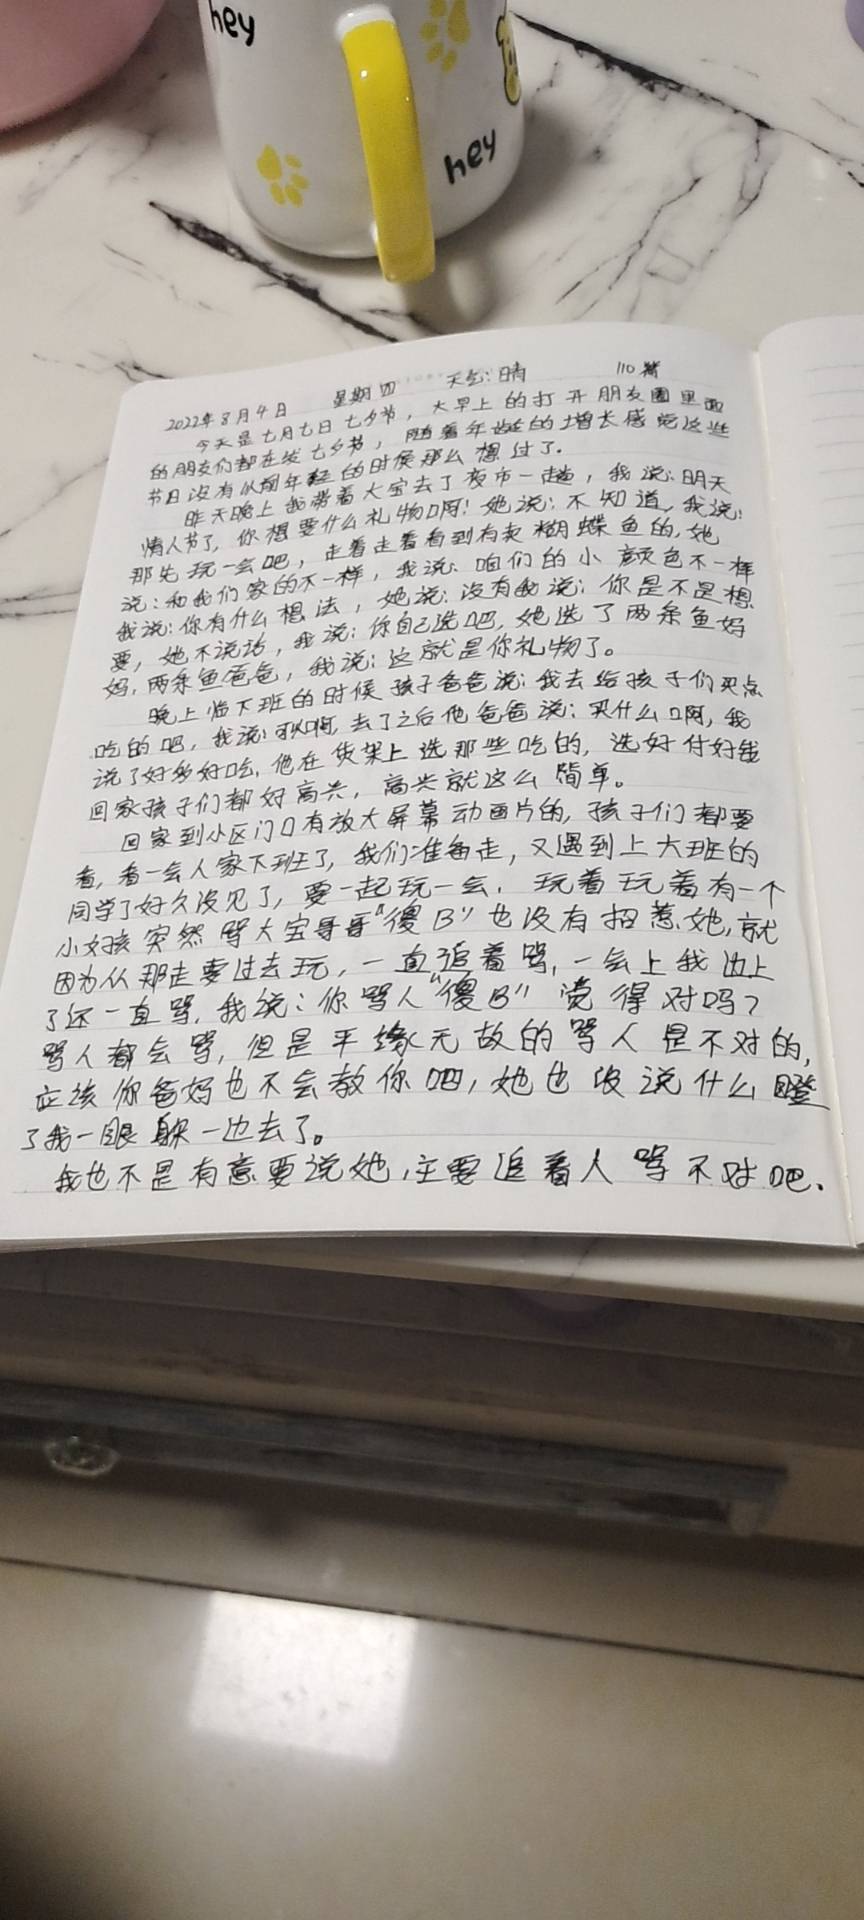 hey
hey
2022年8月4日 星期四 天气:晴 110篇
今天是七月七日七夕节，大早上的打开朋友圈里面
的朋友们都在发七夕节，随着年龄的增长感觉这些
节日没有以前年轻的时候那么想过了.
昨天晚上我带着大宝去了夜市一趟，我说:明天
情人节了，你想要什么礼物啊!她说:不知道，我说:
那先玩一会吧，走着走着看到有卖糊蝶鱼的,她
说:和我们家的不一样，我说:咱们的小颜色不一样
我说:你有什么想法，她说:没有我说:你是不是想
要，她不说话，我说:你自己选吧，她选了两条鱼妈
妈,两条鱼爸爸，我说:这就是你礼物了。
晚上临下班的时候孩子爸爸说:我去给孩子们买点
吃的吧，我说:可以啊,去了之后他爸爸说:买什么啊,我
说了好多好吃,他在货架上选那些吃的，选好付好钱
回家孩子们都好高兴，高兴就这么简单。
回家到小区门口有放大屏幕动画片的，孩子们都要
看,看一会人家下班了，我们准备走，又遇到上大班的
同学了好久没见了，要一起玩一会.玩着玩着有一个
小女孩突然骂大宝哥哥"傻B"也没有招惹她,就
因为从那走要过去玩，一直追着骂,一会上我边上
了还一直骂.我说:你骂人"傻B"觉得对吗?
骂人都会骂,但是平缘无故的骂人是不对的,
应该你爸妈也不会教你吧,她也没说什么瞪
了我一眼躲一边去了。
我也不是有意要说她,主要追着人骂不对吧.